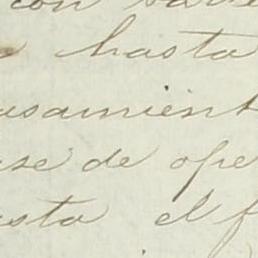 con
hasta
asamient
se de ope
sta el f